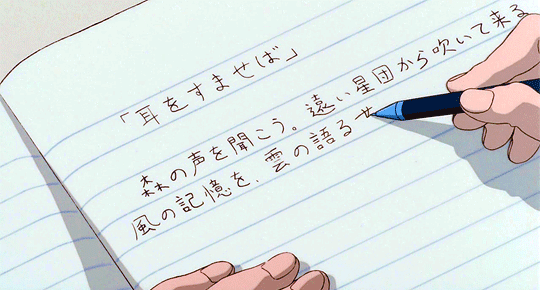 「耳をすませば」
森の声を聞こう。遠い星団から吹いて来る
風の記憶を、雲の語るせ